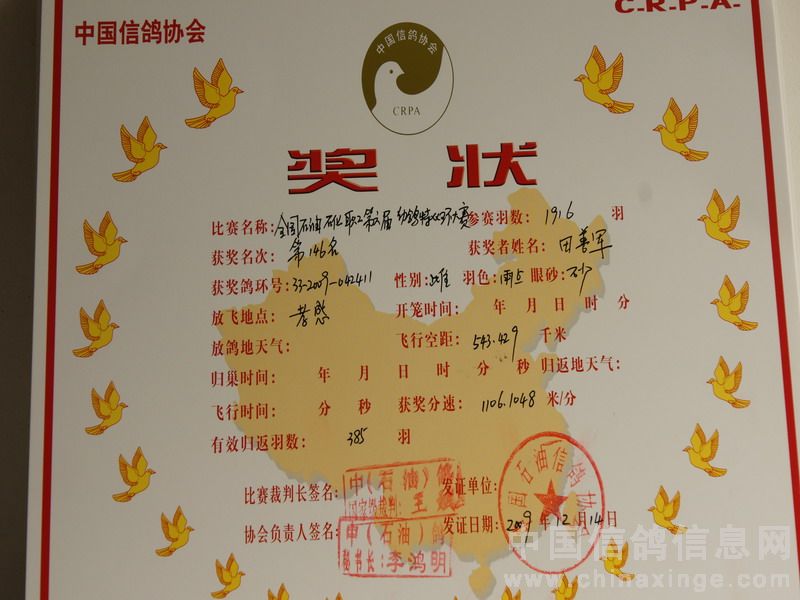 C-R-P-A-
中国信鸽协会
中国信鸽协会
CRPA
奖 状
比赛名称: 全国石油石化职工第六届幼鸽特比环大赛 参赛羽数: 1916 羽
获奖名次: 第146名 获奖者姓名: 田善军
获奖鸽环号: 33-2009-042411 性别: 雄 羽色: 雨点 眼砂: 砂
放飞地点: 孝感 开笼时间: 年 月 日 时 分
放鸽地天气: 飞行空距: 543.429 千米
归巢时间: 年 月 日 时 分 秒 归返地天气:
飞行时间: 分 秒 获奖分速: 1106.1048 米/分
有效归返羽数: 385 羽
比赛裁判长签名: 中(石油) 国家级裁判: 王 发证单位: 石油信鸽协
协会负责人签名: 中(石油)鸽 秘书长:李鸿明 发证日期: 2009年12月14日
中国信鸽信息网
www.chinaxinge.com